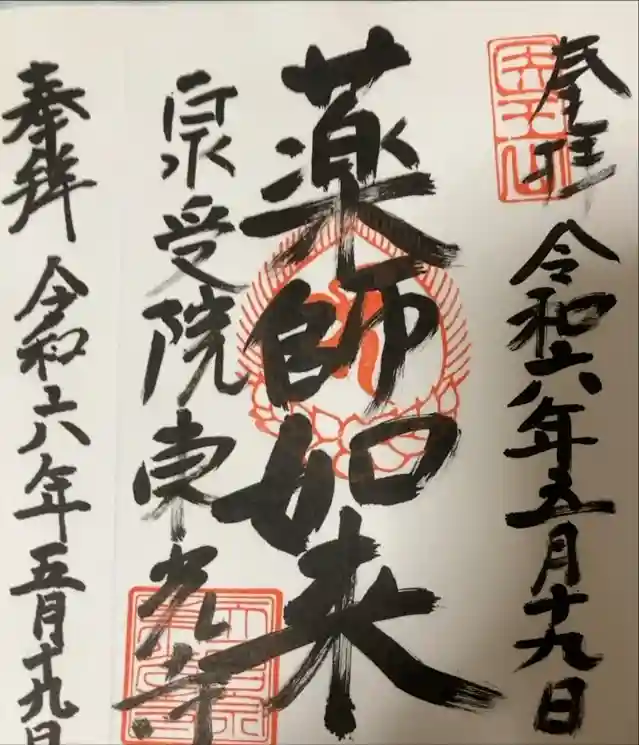 奉拝　令和六年五月十九日
薬師如来
宗受院　東光寺
奉拝　令和六年五月十九日